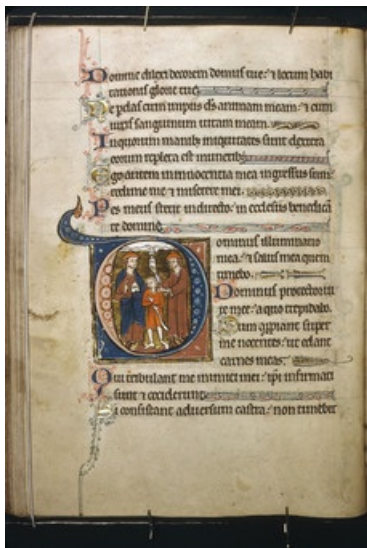 Domine dilexi decorem domus tue: ⁊ locum habi
tationis glorie tue.
Ne ꝑdas cum impiis d̅s animam meam: ⁊ cum
viris sanguinum vitam meam.
In quorum manibꝫ iniquitates sunt: dextera
eorum repleta est muneribꝫ.
Ego autem in innocentia mea ingressus sum:
redime me ⁊ miserere mei.
Pes meus stetit in directo: in ecclesiis benedicā
te domine.
Dominus illuminatio
mea: ⁊ salus mea quem
timebo.
Dominus protector vi
te mee: a quo trepidabo.
Dum appropiant super
me nocentes: ut edant
carnes meas.
Qui tribulant me inimici mei: ipi infirmati
sunt ⁊ ceciderunt.
Si consistant adversum castra: non timebit